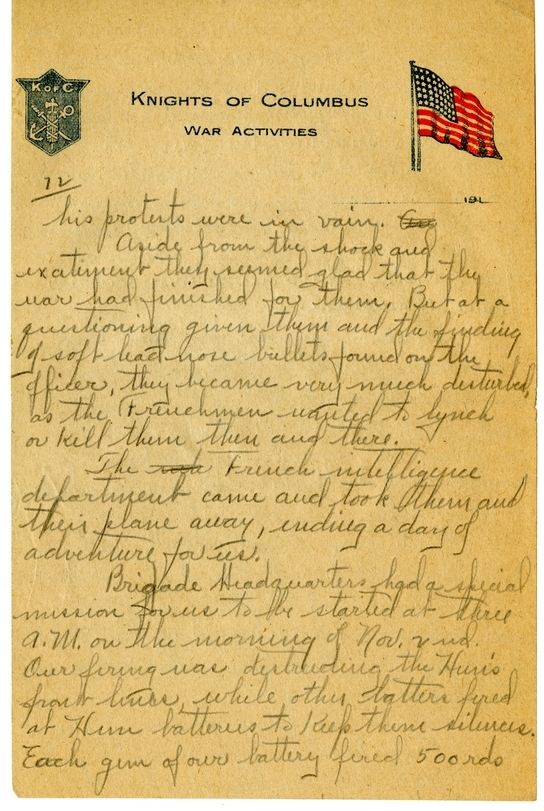 K of C
KNIGHTS OF COLUMBUS
WAR ACTIVITIES
12
191
his protests were in vain.
Aside from the shock and
exatiment they seemed glad that the
war had finished for them. But at a
questioning given them and the finding
of soft lead nose bullets found on the
officer, they became very much disturbed,
as the Frenchmen wanted to lynch
or kill them then and there.
The French intelligence
department came and took them and
their plane away, ending a day of
adventure for us.
Brigade Headquarters had a special
mission for us to be started at three
A.M. on the morning of Nov. 2nd.
Our firing was destroding the Hun's
front lines, while other batters fired
at Hun batteries to keep them silences.
Each gun of our battery fired 500rds